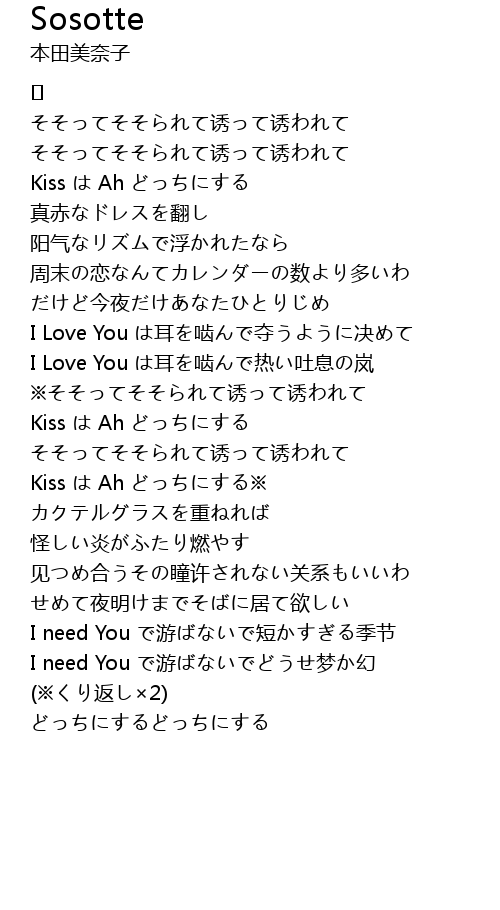 Sosotte
本田美奈子
[]
そそってそそられて诱って诱われて
そそってそそられて诱って诱われて
Kiss は Ah どっちにする
真赤なドレスを翻し
阳气なリズムで浮かれたなら
周末の恋なんてカレンダーの数より多いわ
だけど今夜だけあなたひとりじめ
I Love You は耳を啮んで夺うように决めて
I Love You は耳を啮んで热い吐息の岚
※そそってそそられて诱って诱われて
Kiss は Ah どっちにする
そそってそそられて诱って诱われて
Kiss は Ah どっちにする※
カクテルグラスを重ねれば
怪しい炎がふたり燃やす
见つめ合うその瞳许されない关系もいいわ
せめて夜明けまでそばに居て欲しい
I need You で游ばないで短かすぎる季节
I need You で游ばないでどうせ梦か幻
(※くり返し×2)
どっちにするどっちにする